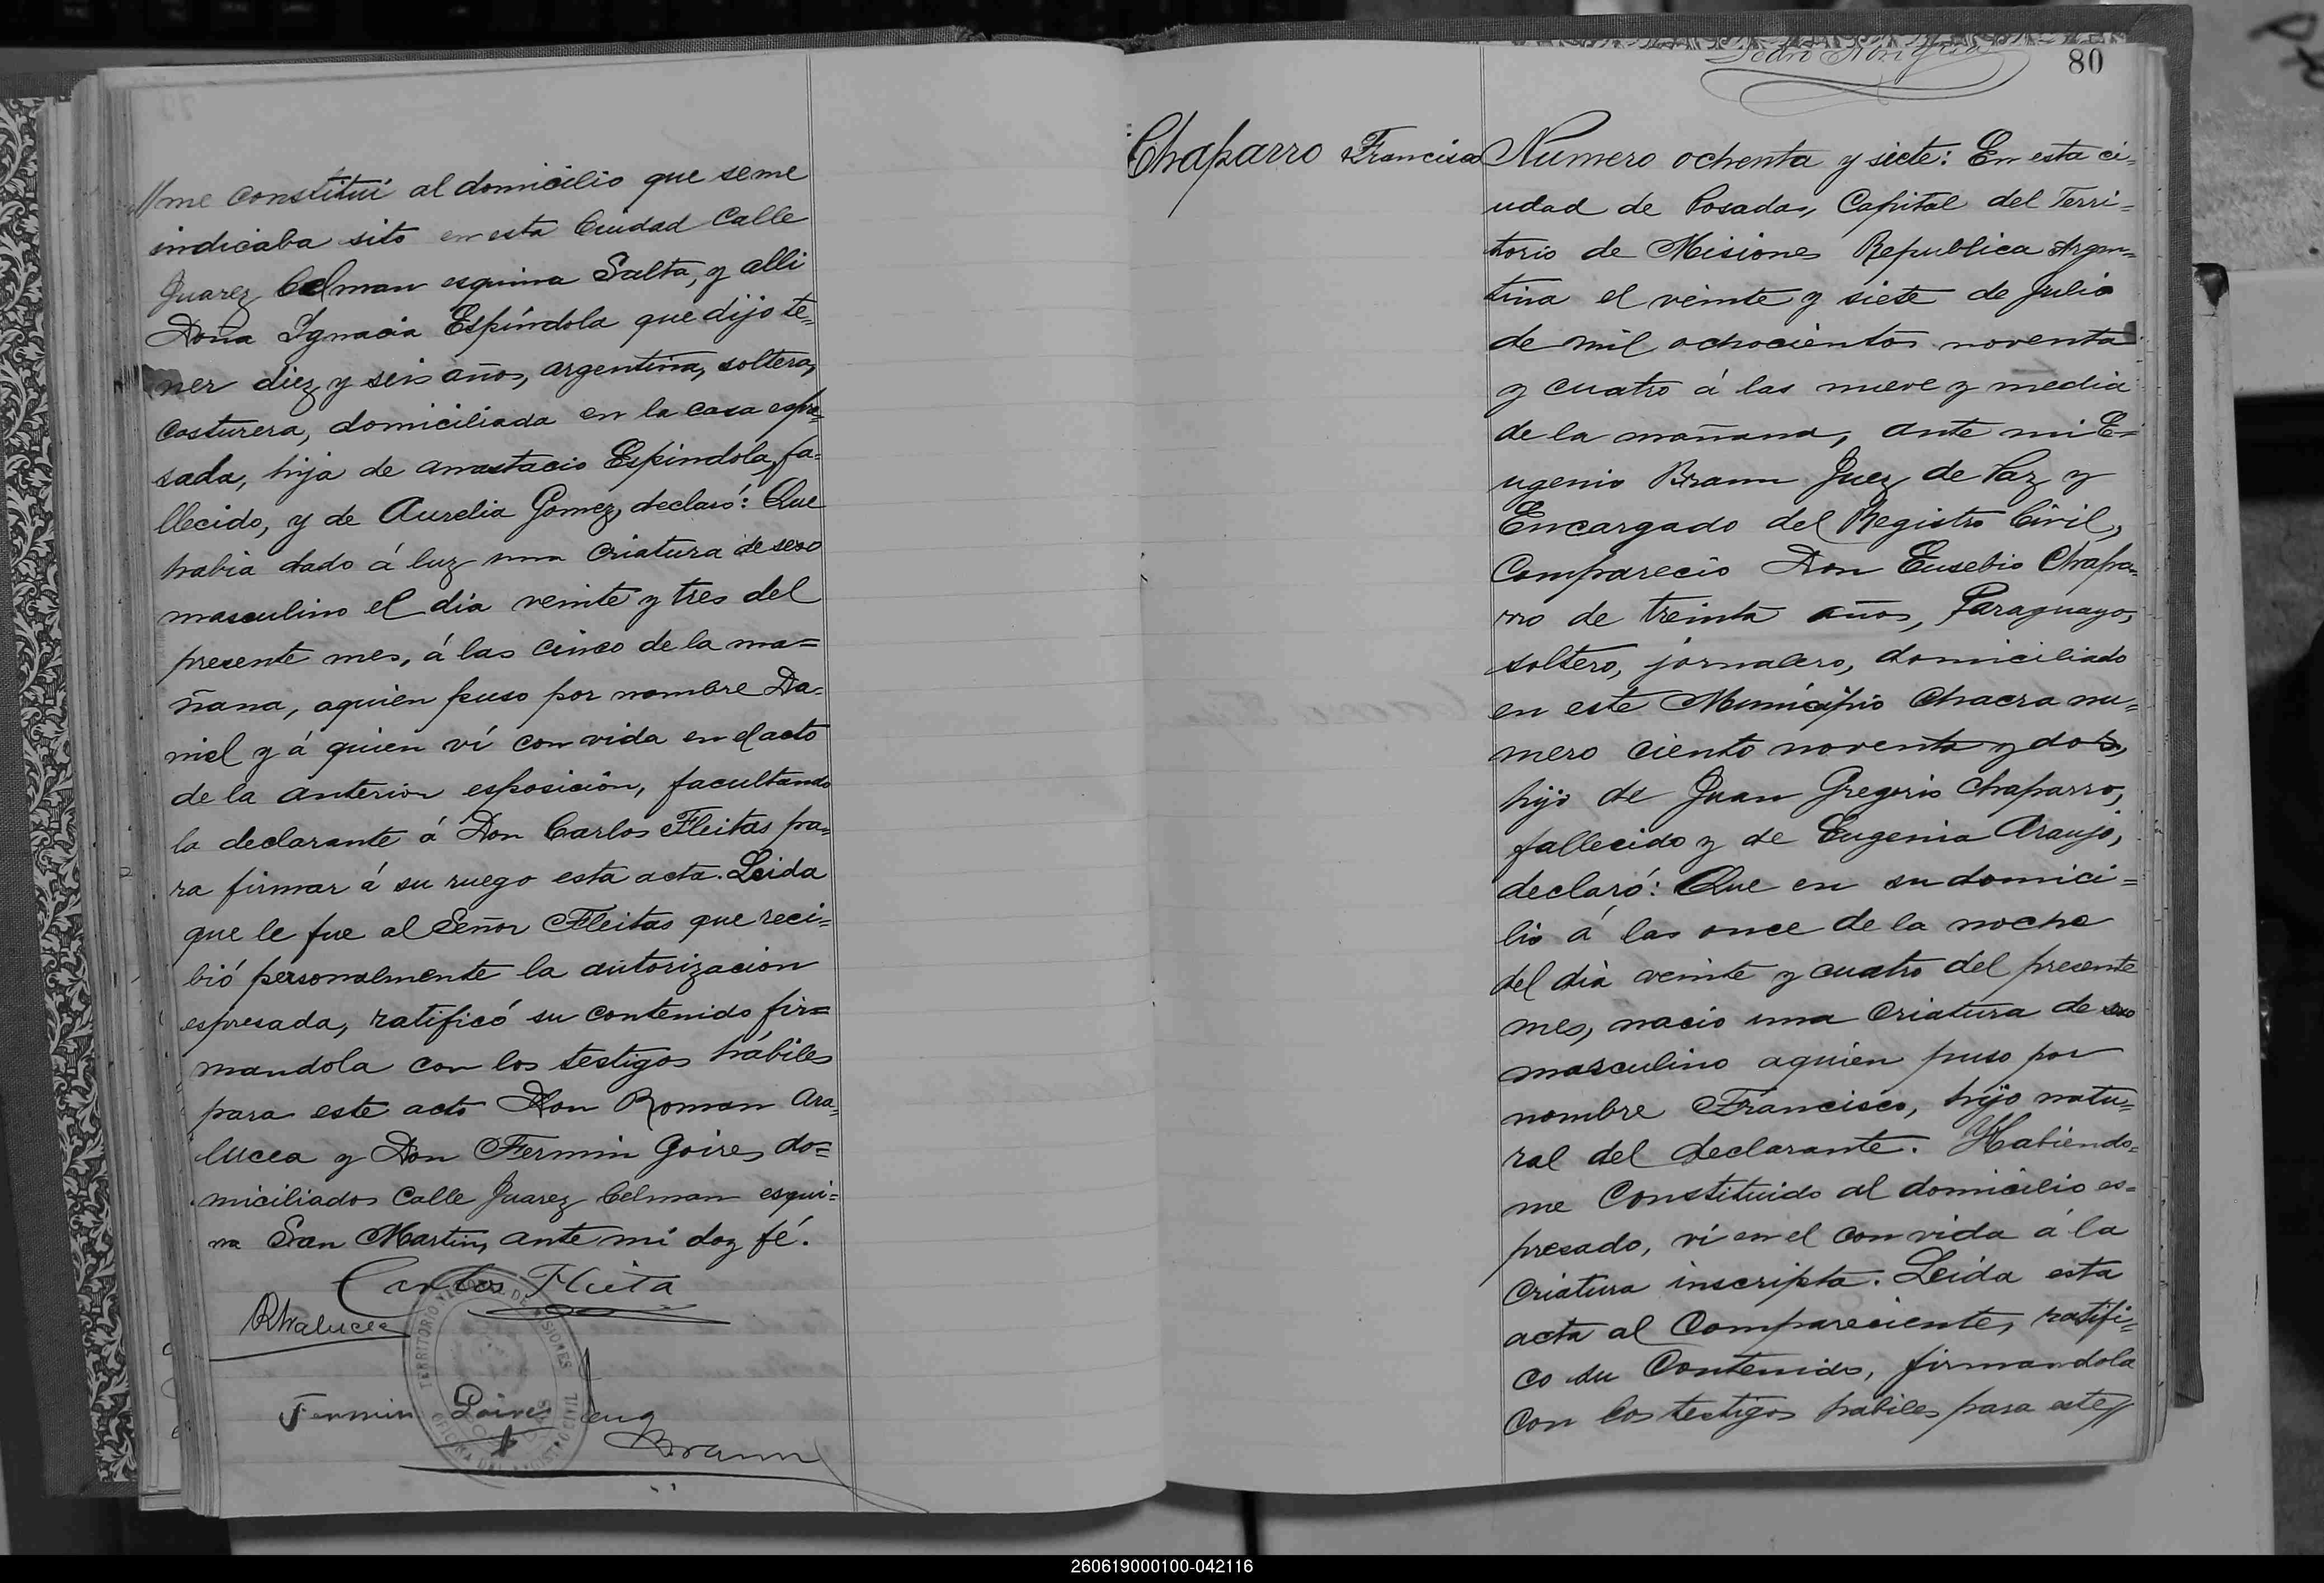 //me constitui al domicilio que se me
indicaba sito en esta Ciudad Calle
Juarez Celman esquina Salta, y alli
Doña Ignacia Espíndola que dijo te=
ner diez y seis años, argentina, soltera,
costurera, domiciliada en la casa espre=
sada, hija de Anastacio Espindola, fa=
llecido, y de Aurelia Gomez, declaró: Que
habia dado á luz una criatura de sexo
masculino el dia veinte y tres del
presente mes, á las cinco de la ma=
ñana, aquien puso por nombre Da=
niel y á quien ví con vida en el acto
de la anterior esposición, facultando
la declarante á Don Carlos Fleitas pa=
ra firmar á su ruego esta acta. Leida
que le fue al Señor Fleitas que reci=
bió personalmente la autorizacion
espresada, ratificó su contenido fir=
mandola con los testigos hábiles
para este acto Don Roman Ara=
lucea y Don Fermin Goires do=
miciliados Calle Juarez Celman esqui=
na San Martin, ante mi doy fé.
Carlos Fleita
RAralucea
TERRITORIO DE MISIONES
Fermin Goires
Eug Braun
80
Chaparro Francisco
Numero ochenta y siete: En esta ci=
udad de Posadas, Capital del Terri=
torio de Misiones Republica Argen=
tina el veinte y siete de Julio
de mil ochocientos noventa
y cuatro á las nueve y media
de la mañana, ante mi E=
ugenio Braun Juez de Paz y
Encargado del Registro Civil,
Comparecio Don Eusebio Chapa=
rro de treinta años, Paraguayo,
soltero, jornalero, domiciliado
en este Municipio Chacra nu=
mero ciento noventa y dos,
hijo de Juan Gregorio Chaparro,
fallecido y de Eugenia Araujo,
declaró: Que en su domici=
lio á las once de la noche
del dia veinte y cuatro del presente
mes, nacio una criatura de sexo
masculino aquien puso por
nombre Francisco, hijo natu=
ral del declarante. Habiendo=
me Constituido al domicilio es=
presado, vi en el con vida á la
Criatura inscripta. Leida esta
acta al Compareciente, ratifi=
co su Contenido, firmandola
Con los testigos habiles para este//
260619000100-042116